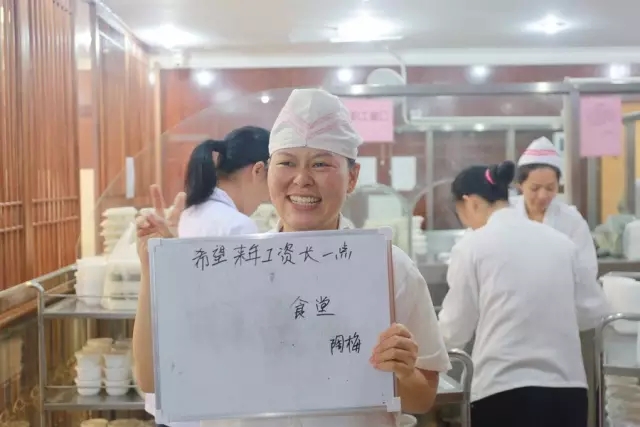 希望来年工资长一点
食堂
陶梅